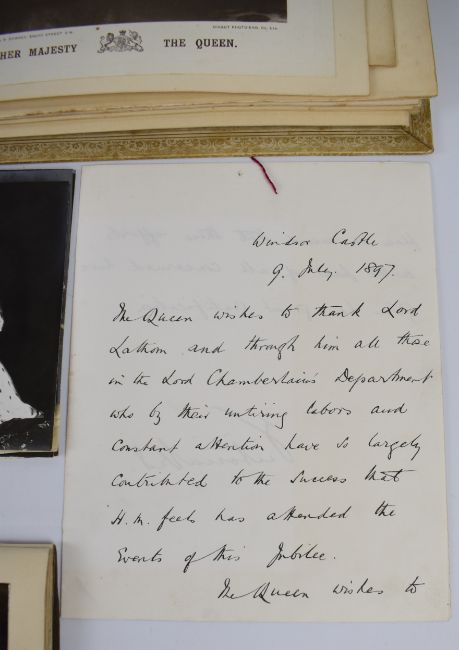 HER MAJESTY THE QUEEN.
Windsor Castle
9. July. 1897.
The Queen wishes to thank Lord
Lathom and through him all those
in the Lord Chamberlain's Department
who by their untiring labors and
constant attention have so largely
contributed to the success that
H.M. feels has attended the
Events of this Jubilee.
The Queen wishes to